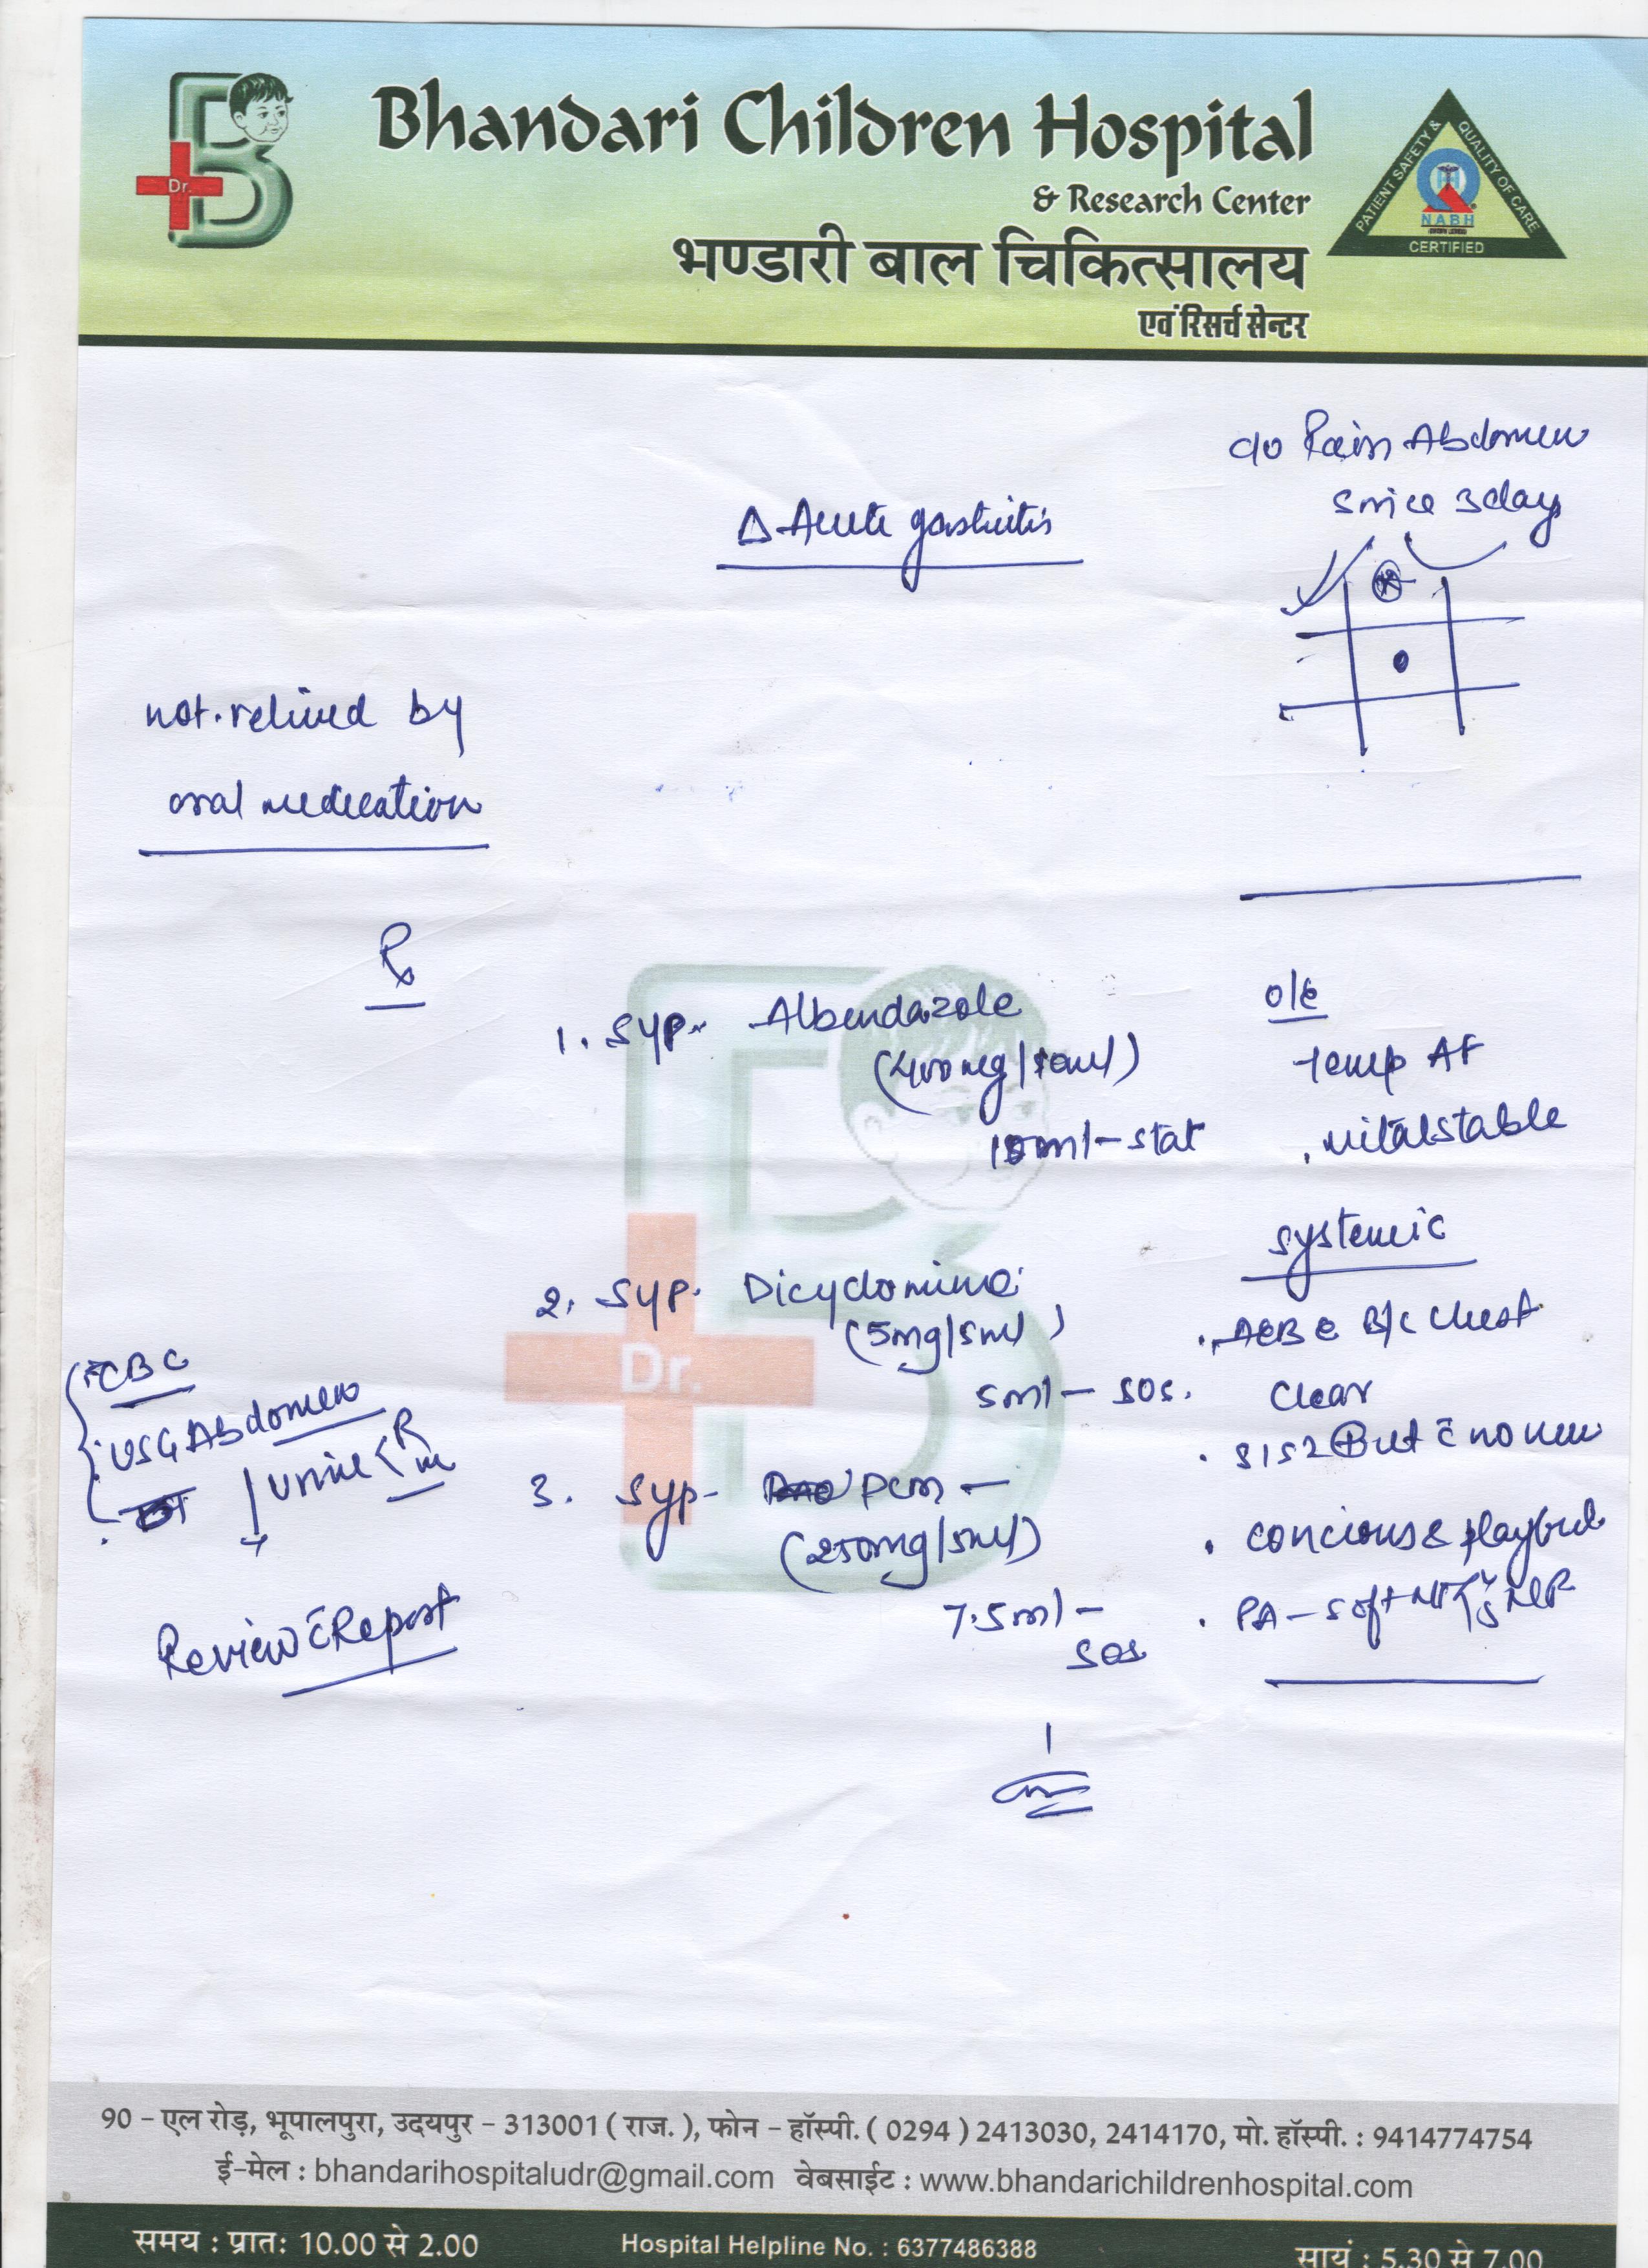 Bhandari Children Hospital
& Research Center
भण्डारी बाल चिकित्सालय
एवं रिसर्च सेन्टर
Dr.
PATIENT SAFETY & QUALITY OF CARE
NABH
CERTIFIED
c/o Pain Abdomen
since 3day
Δ Acute gastritis
not relived by
oral medication
Rx
1. Syp. Albendazole
(400mg/10ml)
10ml - stat
2. Syp. Dicyclomine
(5mg/5ml)
5ml - SOS.
3. Syp- Pcm -
(250mg/5ml)
7.5ml -
SOS
o/e
Temp AF
. vitalstable
systemic
. AEBE B/L Chest
Clear
. S1S2 c̄ no
. Concious & playful
. PA - soft
CBC
USG Abdomen
Urine < R
m
Review c̄ Report
Dr.
90 - एल रोड़, भूपालपुरा, उदयपुर - 313001 ( राज. ), फोन - हॉस्पी. ( 0294 ) 2413030, 2414170, मो. हॉस्पी. : 9414774754
ई-मेल : bhandarihospitaludr@gmail.com वेबसाईट : www.bhandarichildrenhospital.com
समय : प्रात: 10.00 से 2.00 Hospital Helpline No. : 6377486388 सायं : 5.30 से 7.00